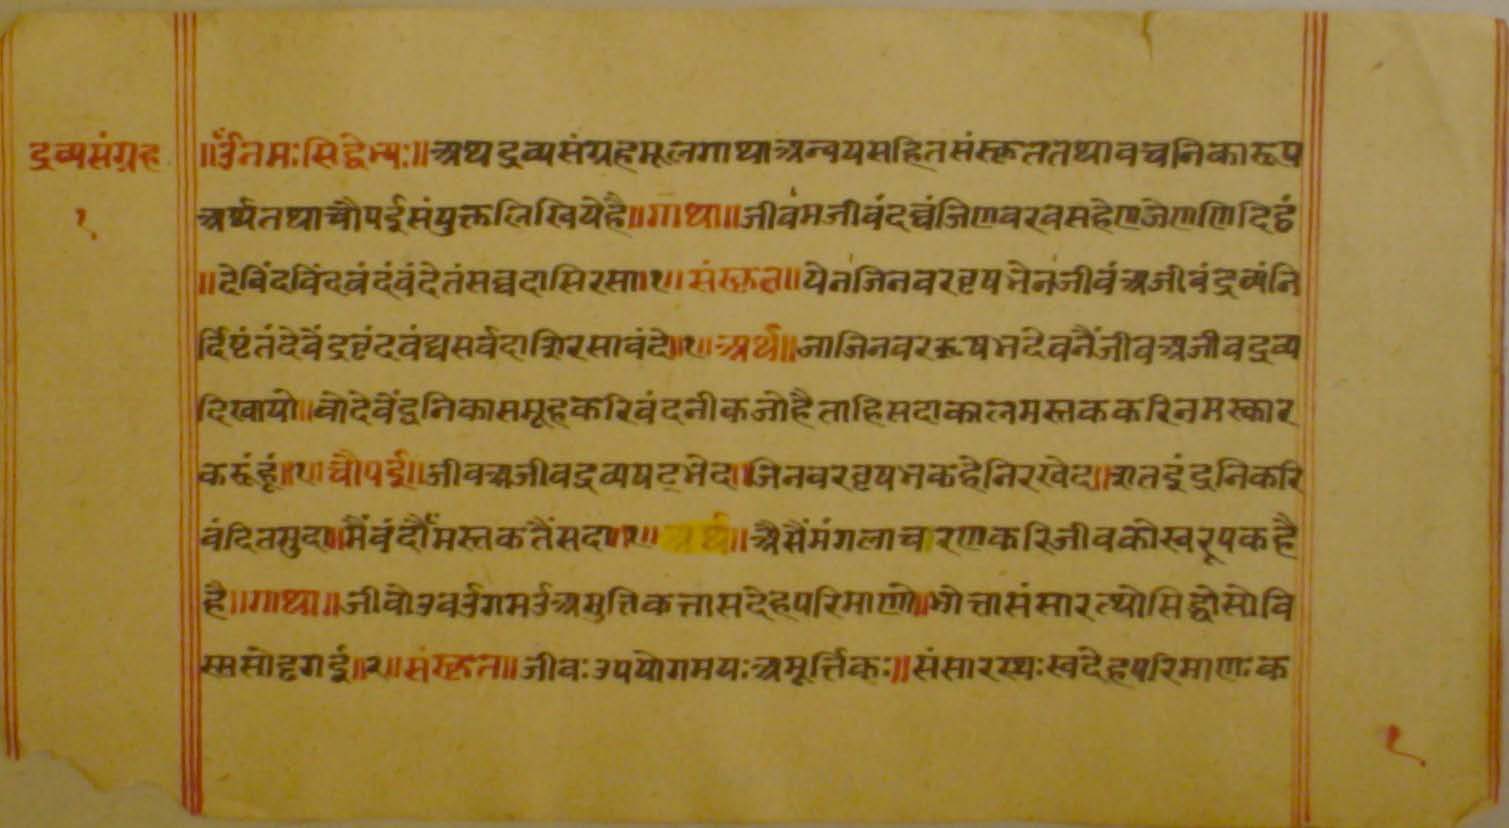 द्रव्यसंग्रह
१
॥ॐनमःसिद्धेभ्यः॥अथद्रव्यसंग्रहमूलगाथाअन्वयसहितसंस्कृततथावचनिकारूप
अर्थतथाचौपईसंयुक्तलिखियेहै॥गाथा॥जीवमजीवंदव्वंजिणवरवसहेणजेणणिदिट्ठं
॥देविंदविंदवंदंवंदेतंसव्वदासिरसा॥१॥संस्कृत॥येनजिनवरवृषभेनजीवंअजीवंद्रव्यंनि
र्दिष्टंतंदेवेंद्रवृंदवंद्यसर्वदाशिरसावंदे॥१॥अर्थ॥जाजिनवरऋषभदेवनैंजीवअजीवद्रव्य
दिखायो॥वोदेवेंद्रनिकासमूहकरिवंदनीकजोहैताहिसदाकालमस्तककरिनमस्कार
करूंहूं॥१॥चौपई॥जीवअजीवद्रव्यषट्भेद॥जिनवरवृषभकहेनिरखेद॥शतइंद्रनिकरि
वंदितमुदा॥मैंवंदौंमस्तकतैंसदा॥१॥अर्थ॥अैसैंमंगलाचरणकरिजीवकोस्वरूपकहै
है॥गाथा॥जीवोउवउगमउअमुत्तिकत्तासदेहपरिमाणो॥भोत्तासंसारत्थोसिद्धोसोवि
स्ससोढ्ढगई॥२॥संस्कृत॥जीवःउपयोगमयःअमूर्त्तिकः॥संसारस्थःस्वदेहपरिमाणःक
१